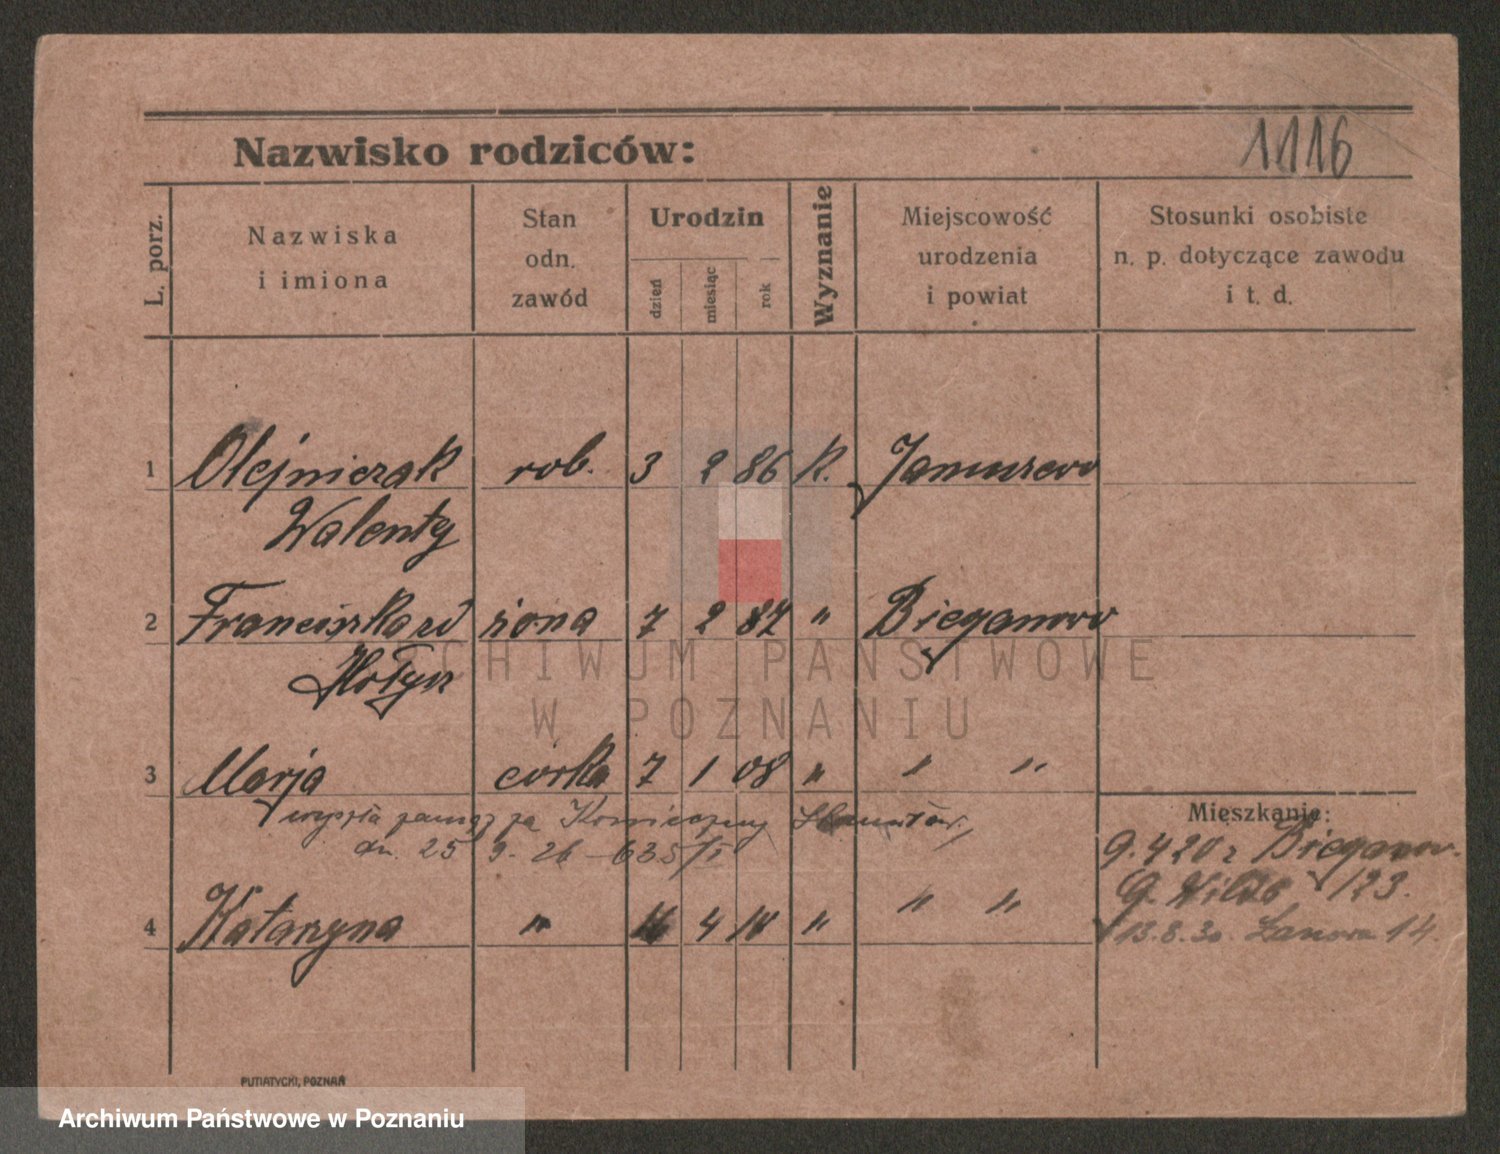 1116
Nazwisko rodziców:
L. porz.
Nazwiska
i imiona
Stan
odn.
zawód
Urodzin
dzień
miesiąc
rok
Wyznanie
Miejscowość
urodzenia
i powiat
Stosunki osobiste
n. p. dotyczące zawodu
i t. d.
1 Olejniczak rob. 3 2 86 k. Januszewo
Walenty
2 Franciszka zd żona 7 2 87 " Bieganowo
Hołyn
ARCHIWUM PAŃSTWOWE
W POZNANIU
3 Marja córka 7 1 08 " " "
wyszła zamąż za Konieczny
dn. 25 9. 26 - 635/I
Mieszkanie:
9. 4 20 z Bieganow.
G. Wilda 123.
4 Katarzyna " 4 " " "
13.8.30. Łanowa 14.
PUTIATYCKI, POZNAŃ
Archiwum Państwowe w Poznaniu